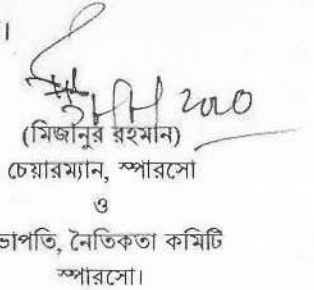 ।
(মিজানুর রহমান)
চেয়ারম্যান, স্পারসো
ও
ভাপতি, নৈতিকতা কমিটি
স্পারসো।